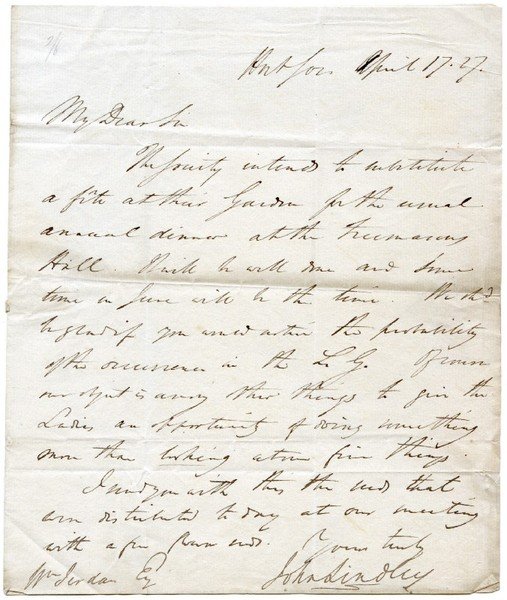 Hort Soc April 17. 27.
My Dear Sir
The Society intends to substitute
a fête at their Garden for the usual
annual dinner at the Freemasons
Hall. It will be well done and some
time in June will be the time. We shd
be glad if you would notice the probability
of the occurrence in the L. G. Of course
our object is among other things to give the
Ladies an opportunity of doing something
more than looking at our fine things.
I send you with this the seeds that
were distributed to day at our meeting
with a few seeds.
Yours truly
Wm Jerdan Esq John Lindley